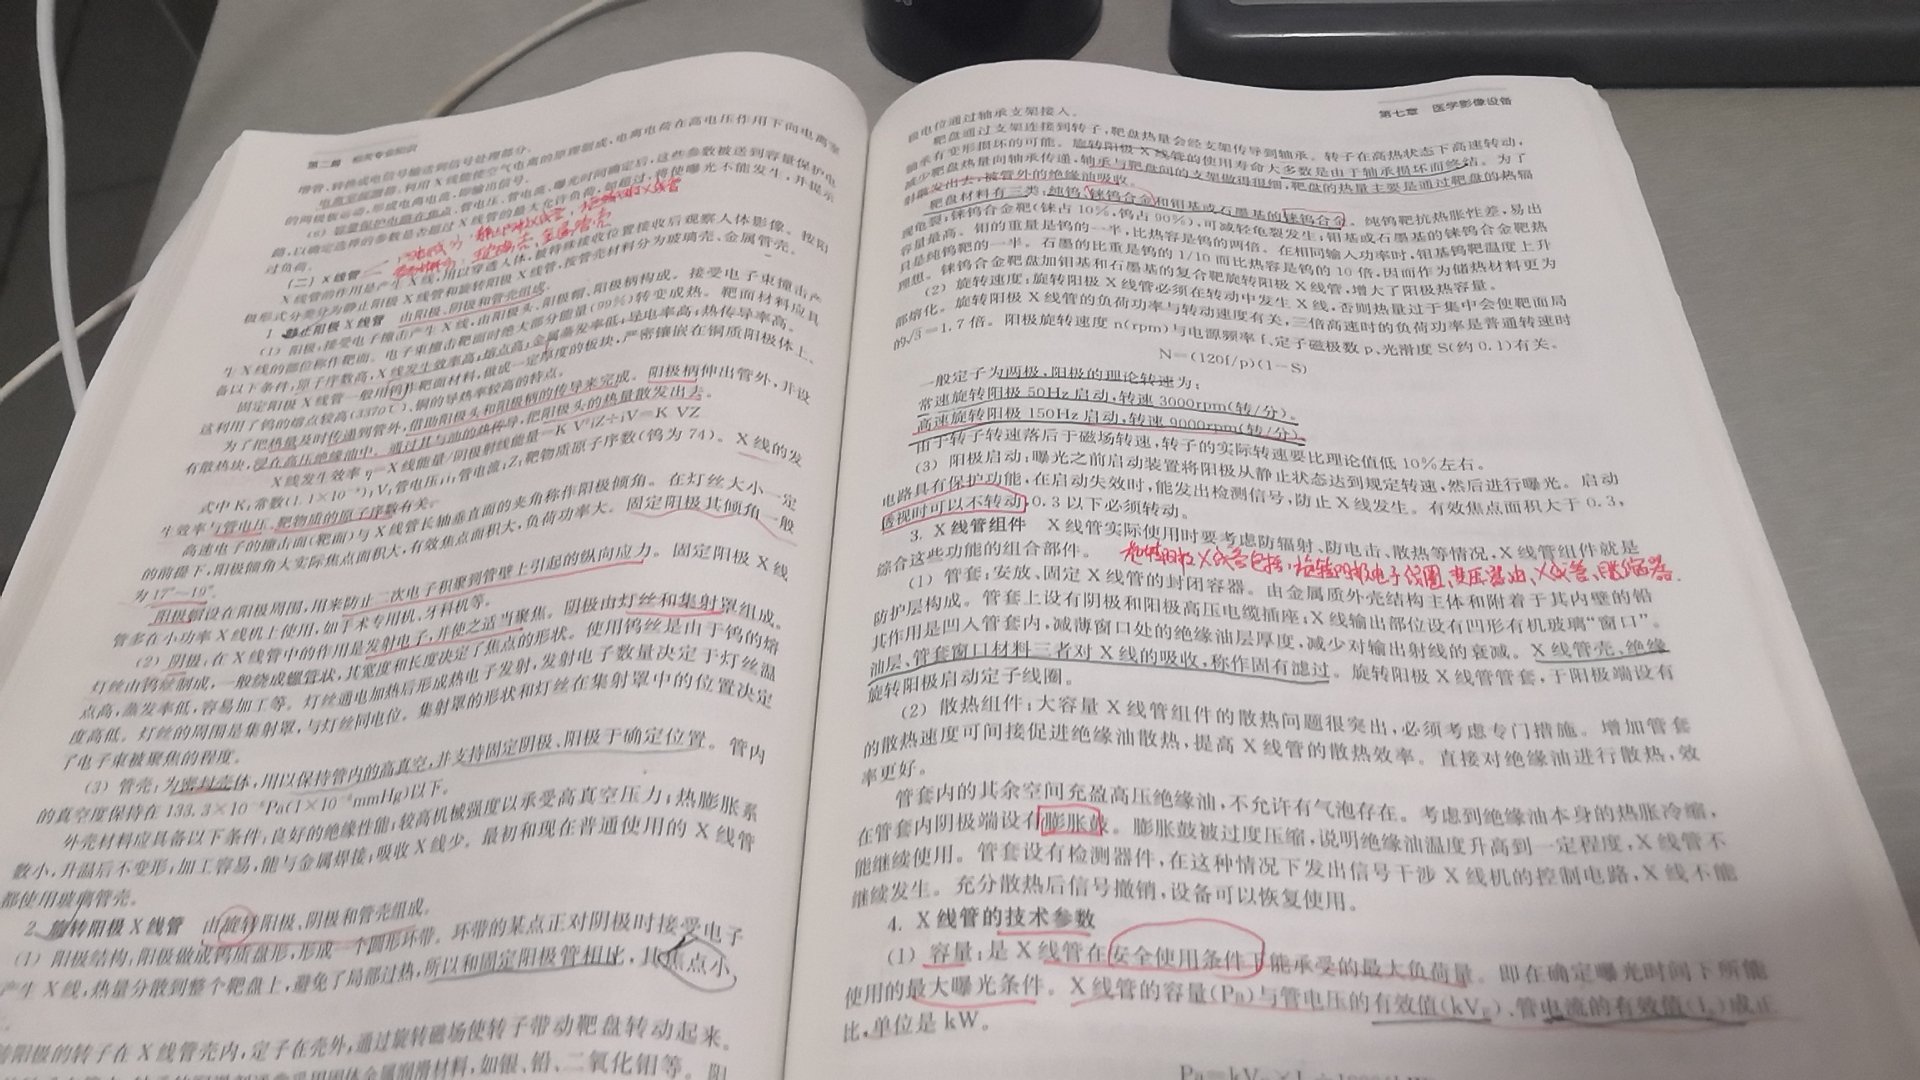 第二篇 相关专业知识
增管，转换成电信号输送到信号处理部分。
电离室探测器，利用X线能使空气电离的原理制成，电离电荷在高电压作用下向电离室
的两极板运动，形成电离电流，即输出信号。
(6) 容量保护电路在焦点、管电压、管电流、曝光时间确定后，这些参数被送到容量保护电
路，以确定选择的参数是否超过X线管的最大允许负荷，如超过，将使曝光不能发生，并提示
过负荷。
(二) X线管
X线管的作用是产生X线，用以穿透人体，被特殊接收位置接收后观察人体影像。按阳
极形式分类分为静止阳极X线管和旋转阳极X线管，按管壳材料分为玻璃壳、金属管壳。
1. 静止阳极X线管 由阳极、阴极和管壳组成。
(1) 阳极：接受电子撞击产生X线，由阳极头、阳极帽、阳极柄构成。接受电子束撞击产
生X线的部位称作靶面。电子束撞击靶面时绝大部分能量(99%)转变成热。靶面材料应具
备以下条件：原子序数高，X线发生效率高；熔点高；金属蒸发率低；导电率高；热传导率高。
固定阳极X线管一般用钨作靶面材料，做成一定厚度的板块，严密镶嵌在铜质阳极体上。
这利用了钨的熔点较高(3370℃)、铜的导热率较高的特点。
为了把热量及时传递到管外，借助阳极头和阳极柄的传导来完成。阳极柄伸出管外，并设
有散热块，浸在高压绝缘油中。通过其与油的热传导，把阳极头的热量散发出去。
X线发生效率η=X线能量/阴极射线能量=K V²iZ÷iV=K VZ
式中K：常数(1.1×10⁻⁹)；V：管电压；i：管电流；Z：靶物质原子序数(钨为74)。X线的发
生效率与管电压、靶物质的原子序数有关。
高速电子的撞击面(靶面)与X线管长轴垂直面的夹角称作阳极倾角。在灯丝大小一定
的前提下，阳极倾角大实际焦点面积大，有效焦点面积大，负荷功率大。固定阳极其倾角一般
为17°～19°。
阳极帽设在阳极周围，用来防止二次电子积聚到管壁上引起的纵向应力。固定阳极X线
管多在小功率X线机上使用，如手术专用机，牙科机等。
(2) 阴极：在X线管中的作用是发射电子，并使之适当聚焦。阴极由灯丝和集射罩组成。
灯丝由钨丝制成，一般绕成螺管状，其宽度和长度决定了焦点的形状。使用钨丝是由于钨的熔
点高，蒸发率低，容易加工等。灯丝通电加热后形成热电子发射，发射电子数量决定于灯丝温
度高低。灯丝的周围是集射罩，与灯丝同电位。集射罩的形状和灯丝在集射罩中的位置决定
了电子束被聚焦的程度。
(3) 管壳：为密封壳体，用以保持管内的高真空，并支持固定阴极、阳极于确定位置。管内
的真空度保持在133.3×10⁻⁶Pa(1×10⁻⁶mmHg)以下。
外壳材料应具备以下条件：良好的绝缘性能；较高机械强度以承受高真空压力；热膨胀系
数小，升温后不变形；加工容易，能与金属焊接；吸收X线少。最初和现在普通使用的X线管
都使用玻璃管壳。
2. 旋转阳极X线管 由旋转阳极、阴极和管壳组成。
(1) 阳极结构：阳极做成钨质盘形，形成一个圆形环带。环带的某点正对阴极时接受电子
产生X线，热量分散到整个靶盘上，避免了局部过热，所以和固定阳极管相比，其焦点小，
阳极的转子在X线管壳内，定子在壳外，通过旋转磁场使转子带动靶盘转动起来。
固体金属润滑材料，如银、铅、二氧化钼等。阳
第七章 医学影像设备
极电位通过轴承支架接入。
靶盘通过支架连接到转子，靶盘热量会经支架传导到轴承。转子在高热状态下高速转动，
轴承有变形损坏的可能。旋转阳极X线管的使用寿命大多数是由于轴承损坏而终结。为了
减少靶盘热量向轴承传递，轴承与靶盘间的支架做得很细，靶盘的热量主要是通过靶盘的热辐
射散发出去，被管外的绝缘油吸收。
靶盘材料有三类：纯钨、铼钨合金和钼基或石墨基的铼钨合金。纯钨靶抗热胀性差，易出
现龟裂；铼钨合金靶(铼占10%，钨占90%)，可减轻龟裂发生；钼基或石墨基的铼钨合金靶热
容量最高。钼的重量是钨的一半，比热容是钨的两倍。在相同输入功率时，钼基钨靶温度上升
只是纯钨靶的一半。石墨的比重是钨的1/10而比热容是钨的10倍，因而作为储热材料更为
理想。铼钨合金靶盘加钼基和石墨基的复合靶旋转阳极X线管，增大了阳极热容量。
(2) 转动速度：旋转阳极X线管必须在转动中发生X线，否则热量过于集中会使靶面局
部熔化。旋转阳极X线管的负荷功率与转动速度有关，三倍高速时的负荷功率是普通转速时
的√3=1.7倍。阳极旋转速度n(rpm)与电源频率f、定子磁极数p、光滑度S(约0.1)有关。
N=(120f/p)(1-S)
一般定子为两极，阳极的理论转速为：
常速旋转阳极50Hz启动，转速3000rpm(转/分)。
高速旋转阳极150Hz启动，转速9000rpm(转/分)。
由于转子转速落后于磁场转速，转子的实际转速要比理论值低10%左右。
(3) 阳极启动：曝光之前启动装置将阳极从静止状态达到规定转速，然后进行曝光。启动
电路具有保护功能，在启动失效时，能发出检测信号，防止X线发生。有效焦点面积大于0.3，
透视时可以不转动，0.3以下必须转动。
3. X线管组件 X线管实际使用时要考虑防辐射、防电击、散热等情况，X线管组件就是
综合这些功能的组合部件。 旋转阳极X线管包括：旋转阳极电子线圈、变压器油、X线管、膨胀器.
(1) 管套：安放、固定X线管的封闭容器。由金属质外壳结构主体和附着于其内壁的铅
防护层构成。管套上设有阴极和阳极高压电缆插座；X线输出部位设有凹形有机玻璃“窗口”。
其作用是凹入管套内，减薄窗口处的绝缘油层厚度，减少对输出射线的衰减。X线管壳、绝缘
油层、管套窗口材料三者对X线的吸收，称作固有滤过。旋转阳极X线管管套，于阳极端设有
旋转阳极启动定子线圈。
(2) 散热组件：大容量X线管组件的散热问题很突出，必须考虑专门措施。增加管套
的散热速度可间接促进绝缘油散热，提高X线管的散热效率。直接对绝缘油进行散热，效
率更好。
管套内的其余空间充盈高压绝缘油，不允许有气泡存在。考虑到绝缘油本身的热胀冷缩，
在管套内阴极端设有膨胀鼓。膨胀鼓被过度压缩，说明绝缘油温度升高到一定程度，X线管不
能继续使用。管套设有检测器件，在这种情况下发出信号干涉X线机的控制电路，X线不能
继续发生。充分散热后信号撤销，设备可以恢复使用。
4. X线管的技术参数
(1) 容量：是X线管在安全使用条件下能承受的最大负荷量。即在确定曝光时间下所能
使用的最大曝光条件。X线管的容量(Pa)与管电压的有效值(kVₑ)、管电流的有效值(Iₑ)成正
比，单位是kW。